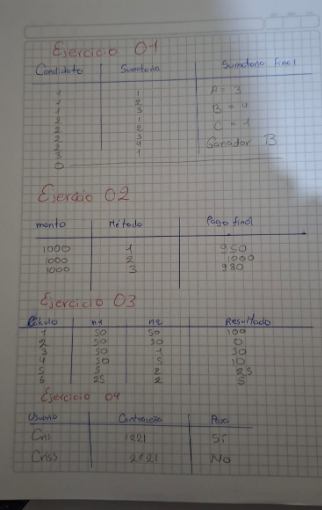 Ejercicio 01
Candidato Sumatoria Sumatoria final
1 1 A = 3
1 2 B = 4
1 3
2 1 C = 1
2 2
2 3 Ganador B
2 4
3 1
0
Ejercicio 02
monto Método Pago final
1000 1 950
1000 2 1000
1000 3 980
Ejercicio 03
n1 n2 Resultado
1 50 50 100
2 50 0
3 50 1 50
4 50 5 10
5 5 2 25
6 25 2 5
Ejercicio 04
Usuario Contraseña
Cris 1221 Si
Criss 2121 No